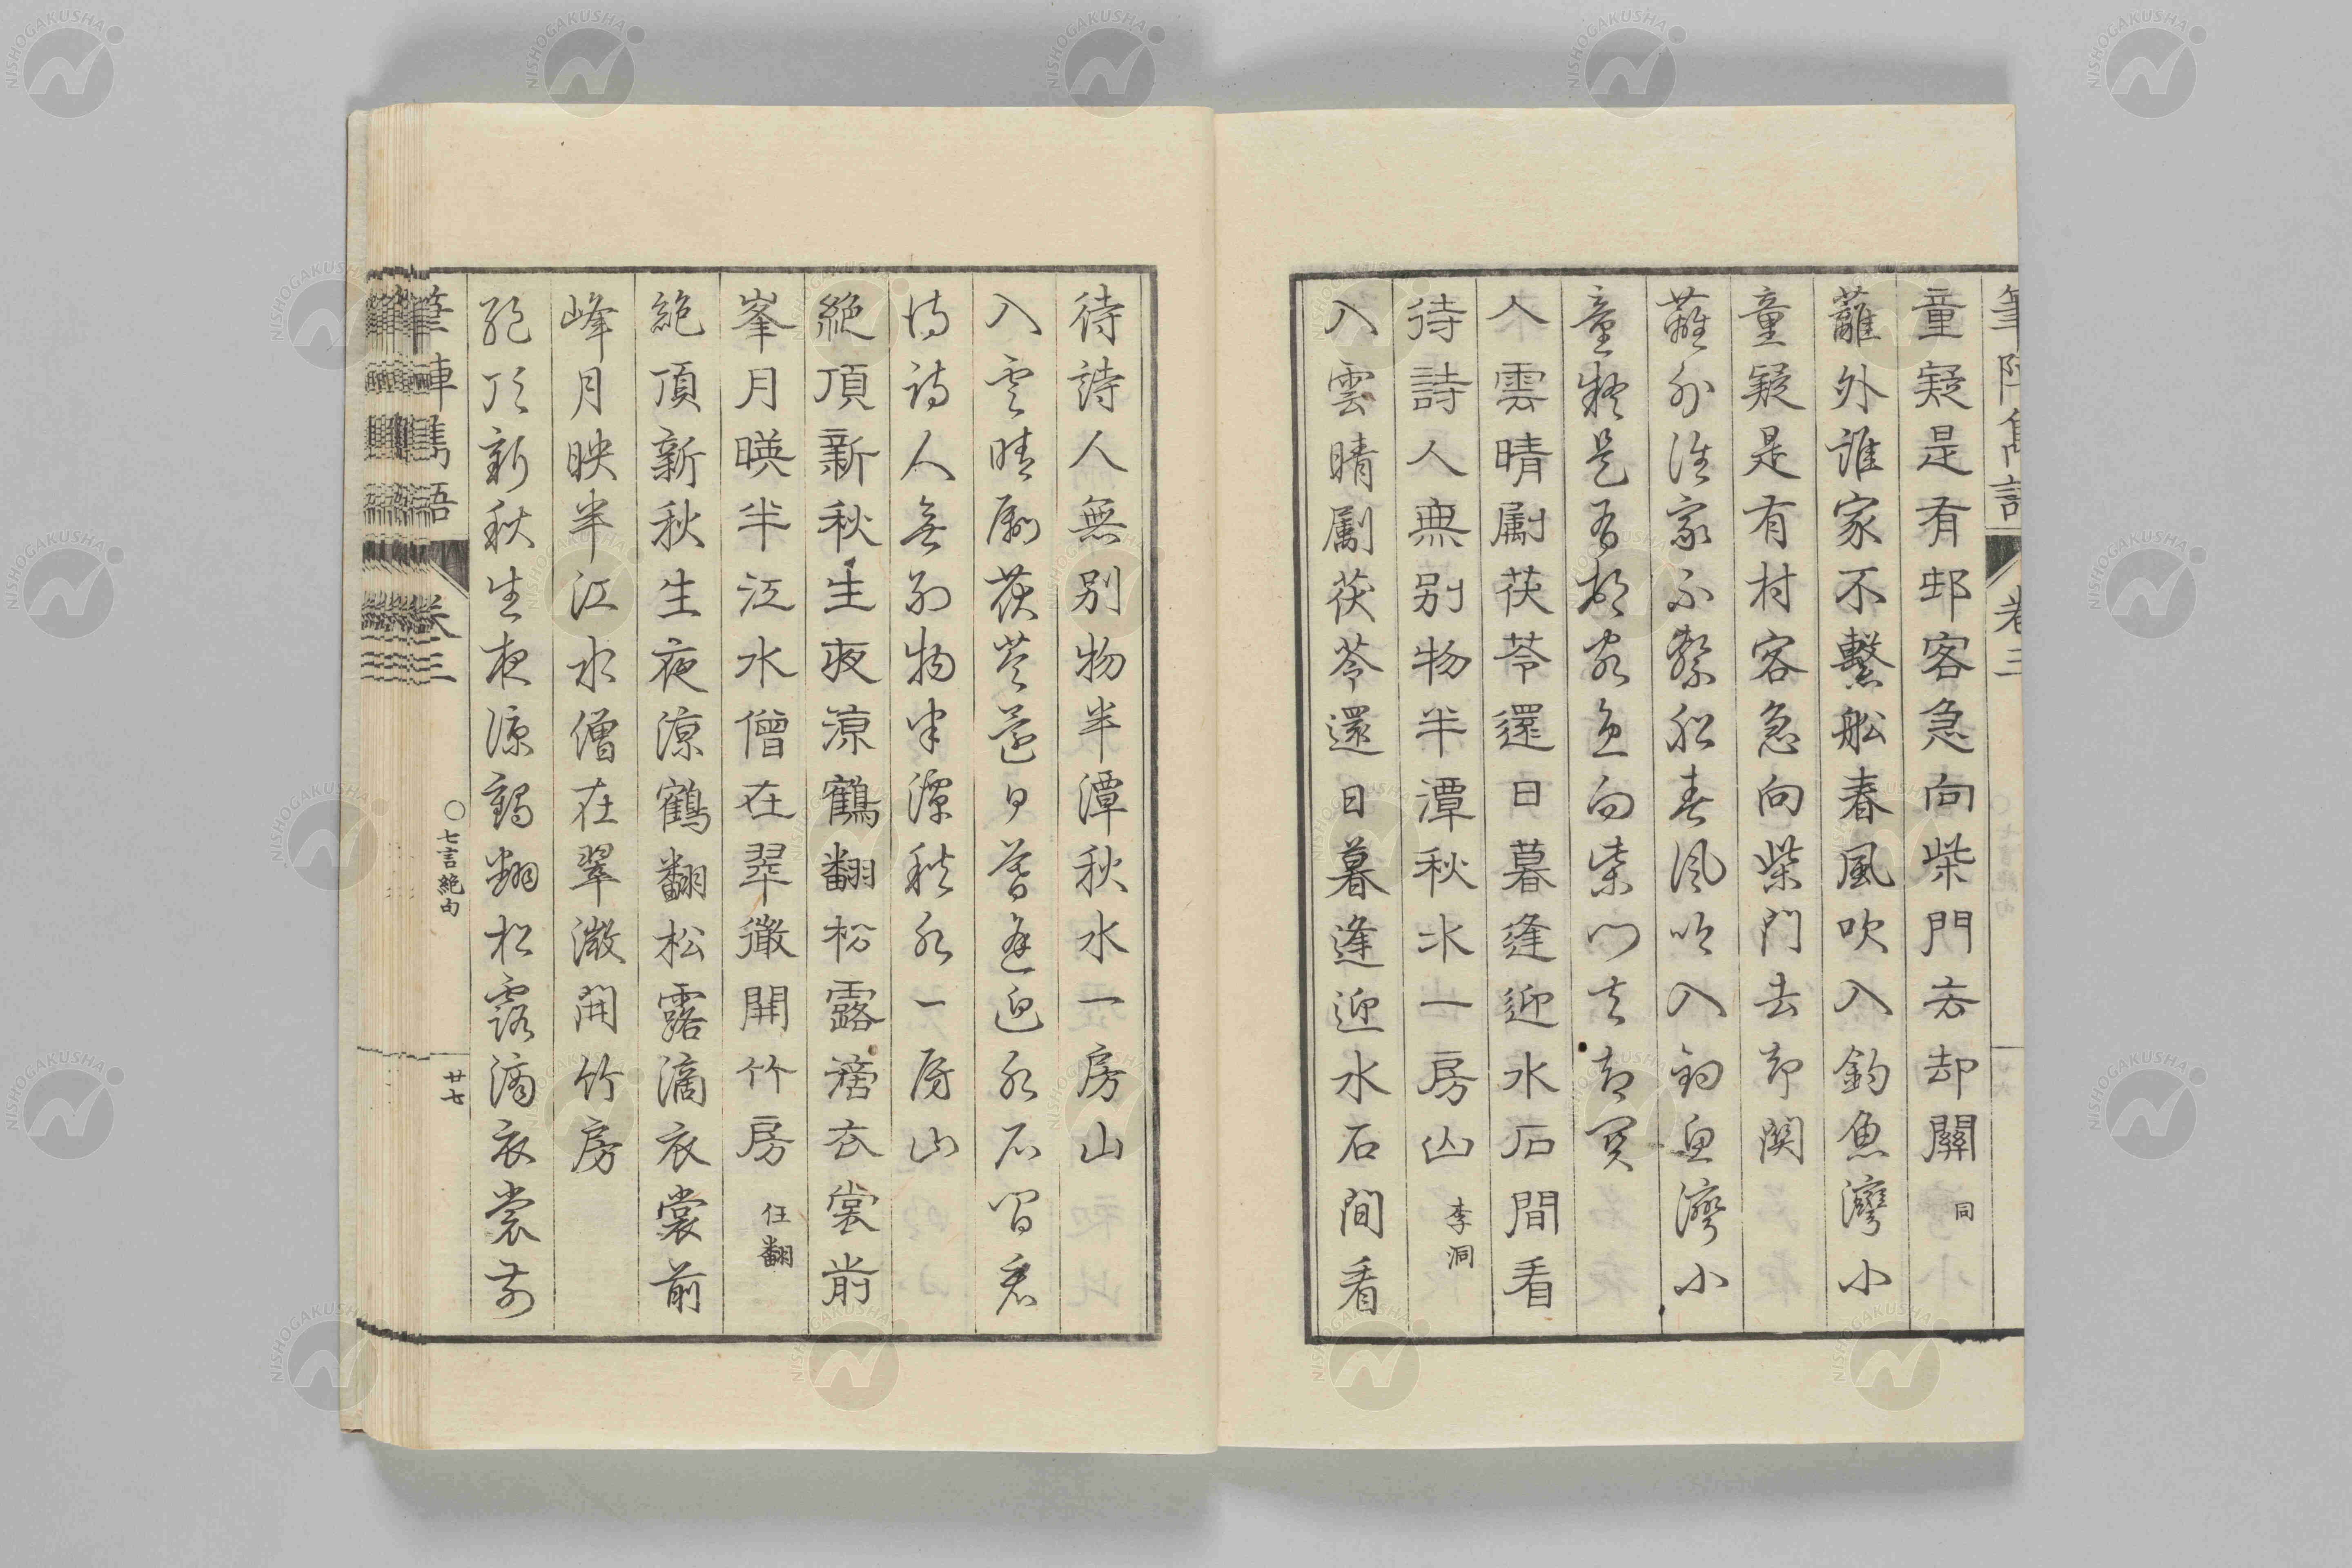 童疑是有邨客急向柴門去却關 同
蘺外誰家不繫舩春風吹入釣魚灣小
童疑是有村客急向柴門去却関
蘺外誰家不繫船春風吹入釣魚灣小
童疑是有村客急向柴門去却関
入雲晴劚茯苓還日暮逢迎水石間看
待詩人無别物半潭秋水一房山 李洞
入雲晴劚茯苓還日暮逢迎水石間看
待詩人無别物半潭秋水一房山
入雲晴劚茯苓還日暮逢迎水石間看
待詩人無别物半潭秋水一房山
絶頂新秋生夜涼鶴翻松露滴衣裳前
峯月暎半江水僧在翠微開竹房 任翻
絶頂新秋生夜涼鶴翻松露滴衣裳前
峰月映半江水僧在翠微開竹房
絶頂新秋生夜涼鶴翻松露滴衣裳前
卷三 〇七言絶句 廿七
NISHOGAKUSHA